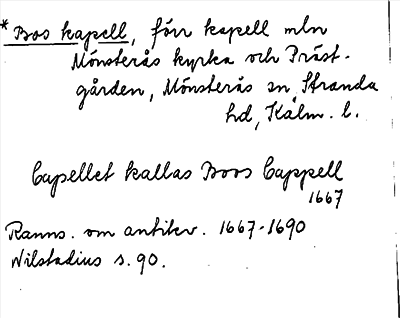 * Bos kapell, förr kapell mln
Mönsterås kyrka och Präst-
gården, Mönsterås sn, Stranda
hd, Kalm. l.
Capellet kallas Boos Cappell
1667
Ranns. om antikv. 1667-1690
Nilstadius s. 90.